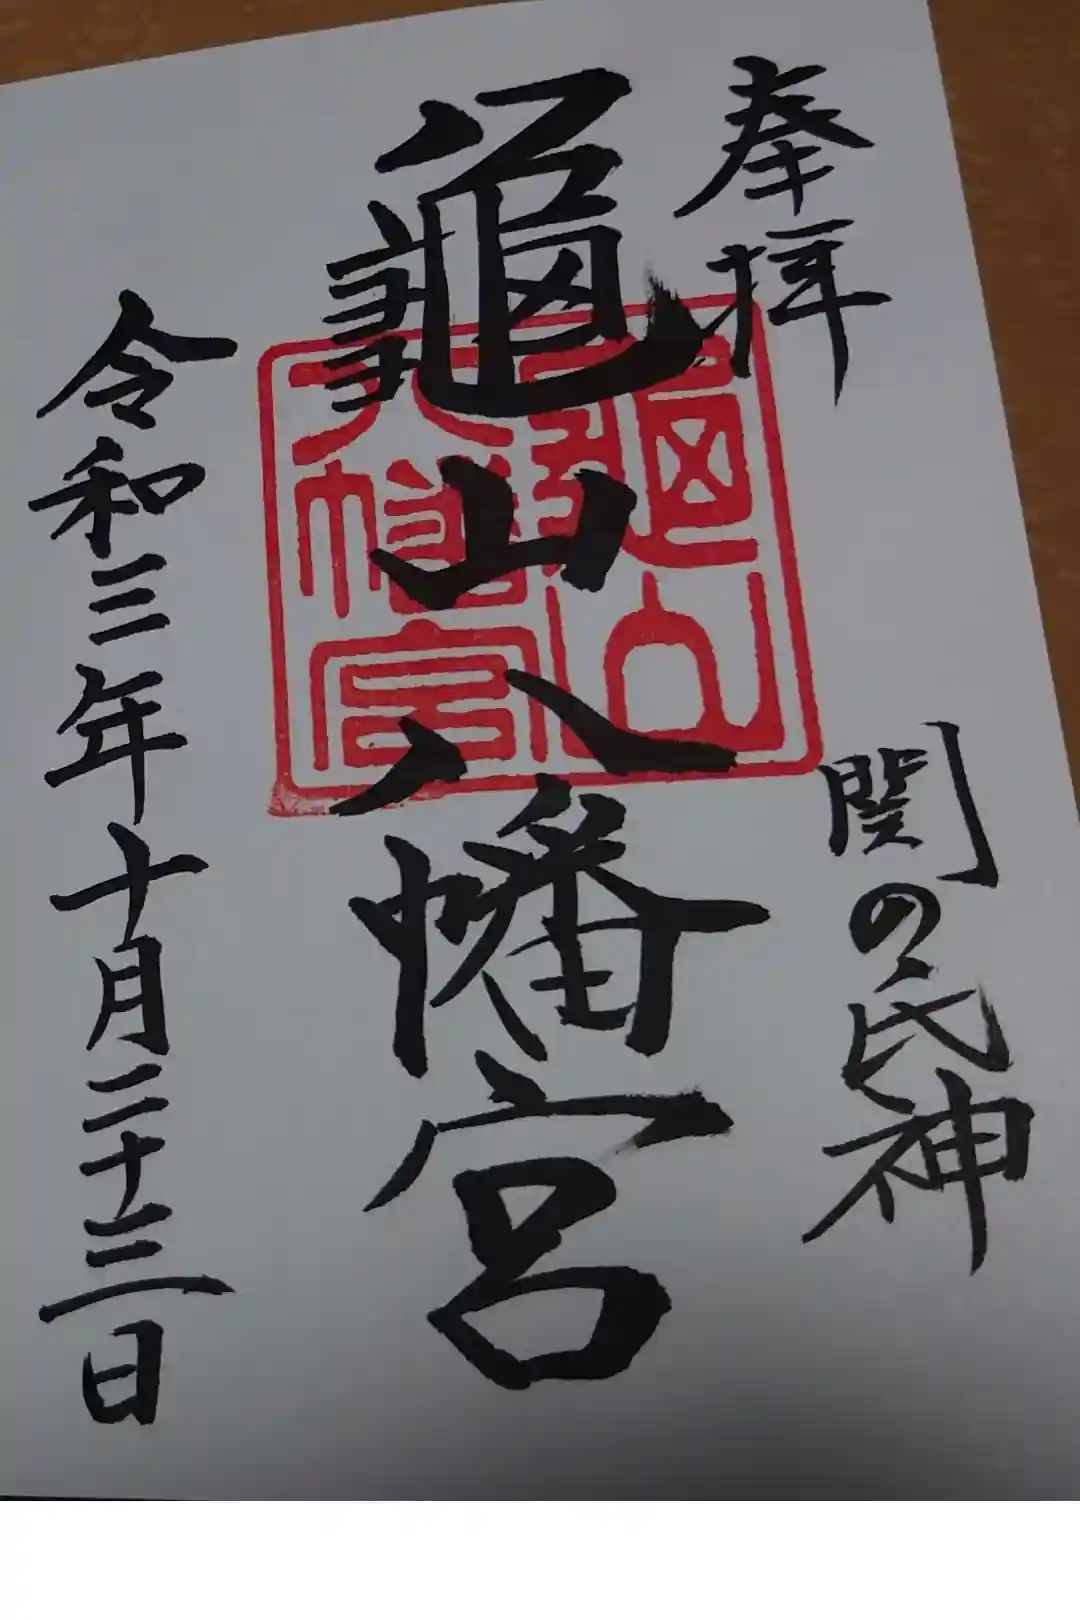 奉拝
関の氏神
龜山八幡宮
龜山
八幡宮
令和三年十月二十三日